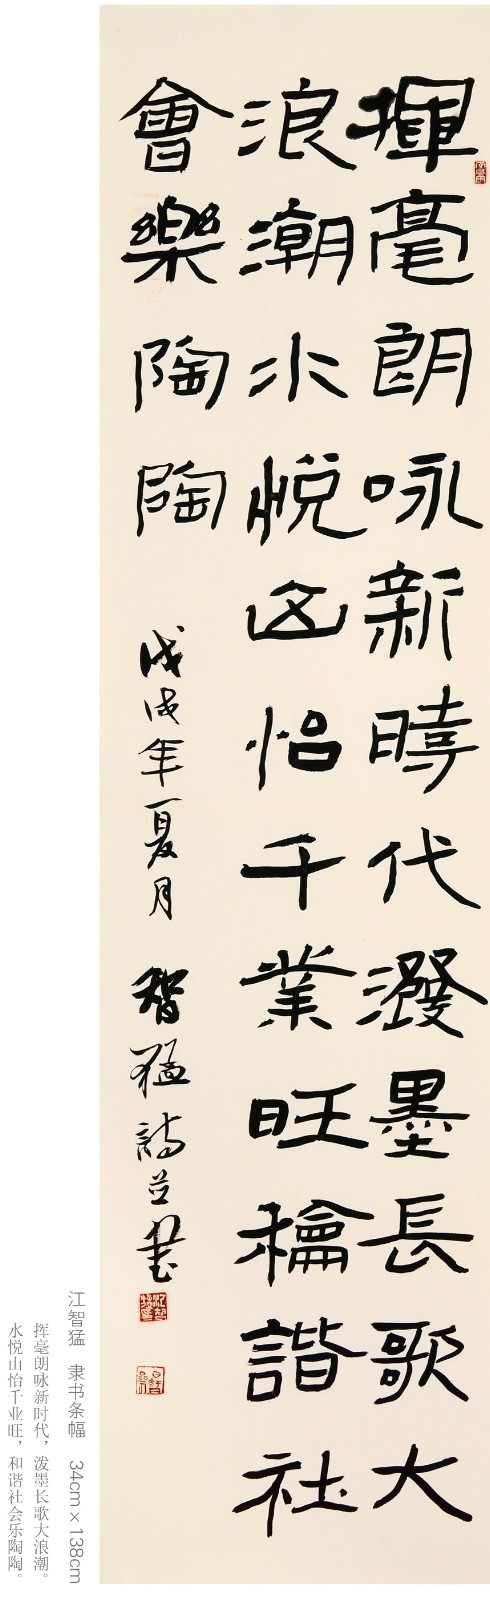 揮毫朗咏新時代潑墨長歌大
浪潮水悦山怡千業旺龢諧社
會樂陶陶 戊戌年夏月 智猛詩並書
江智猛 隶书条幅 34cm×138cm
挥毫朗咏新时代，泼墨长歌大浪潮。
水悦山怡千业旺，和谐社会乐陶陶。